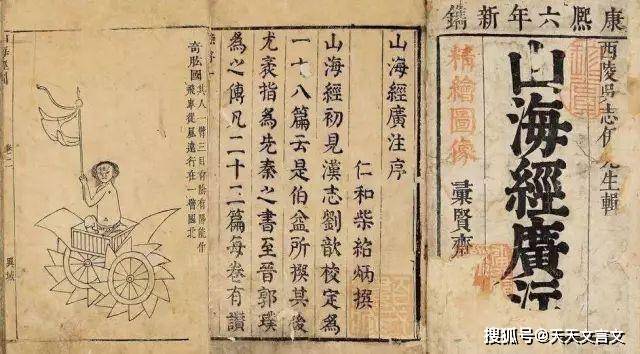 康熙六年新鐫
西陵吳志伊先生輯
山海經廣注
精繪圖像
彙賢齋
山海經廣注序
仁和柴紹炳撰
山海經初見漢志劉歆校定為
一十八篇云是伯益所撰其後
尤袤指為先秦之書至晉郭璞
為之傳凡二十三篇每卷有讚
奇肱國
其人一臂三目有陰有陽能作
飛車從風遠行在一臂國北
異域
搜狐号@天天文言文